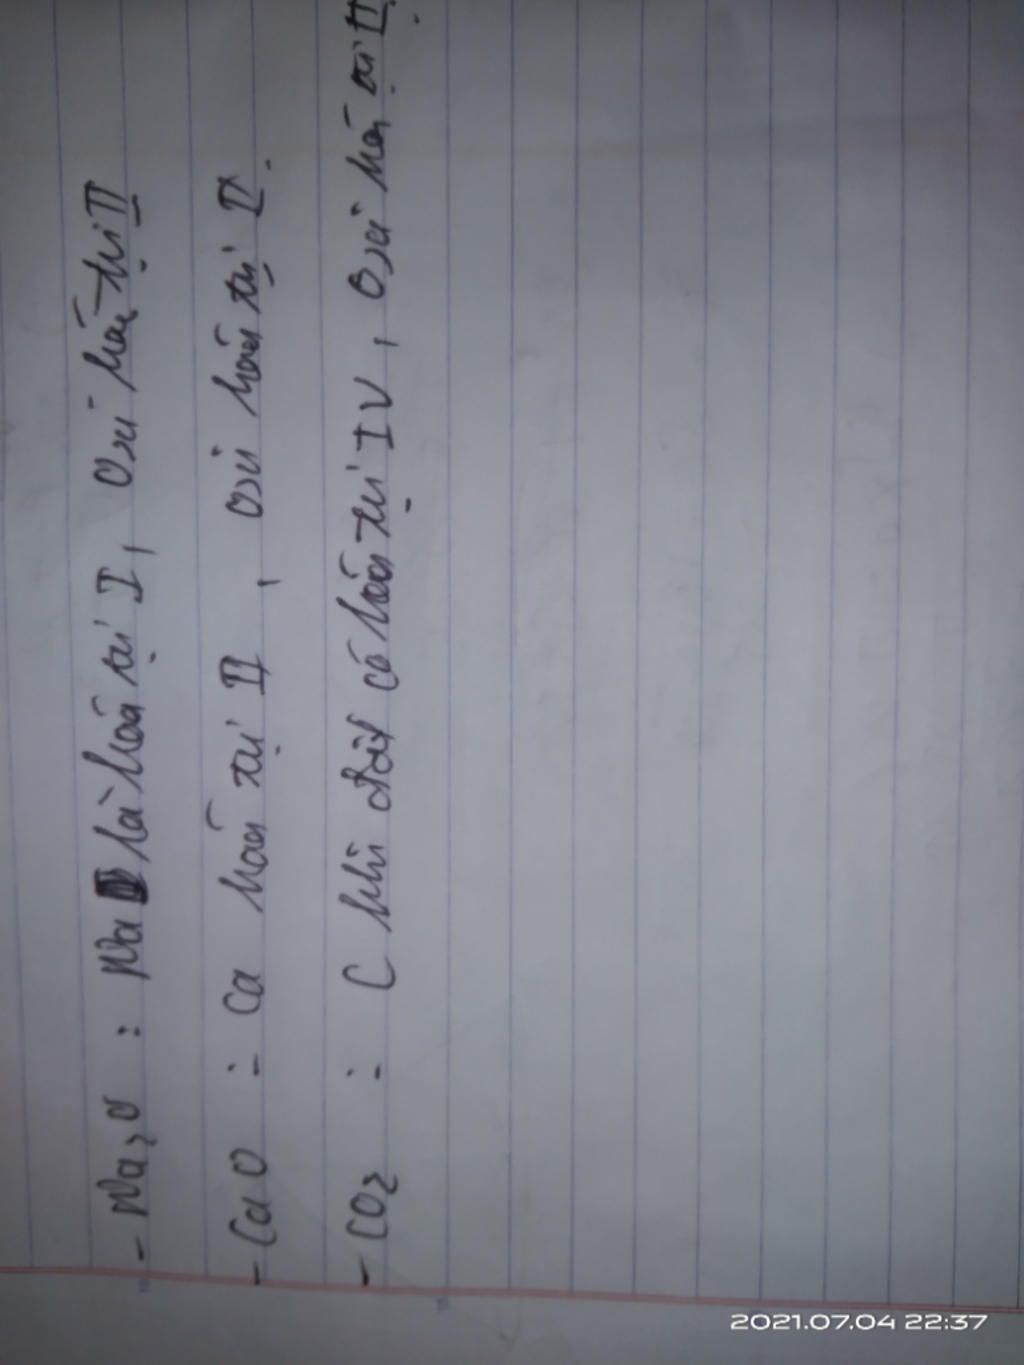 - Na2O : Na là hoá trị I, oxi hoá trị II
- CaO : Ca hoá trị II, oxi hoá trị II.
- CO2 : C khi đó có hoá trị IV, oxi hoá trị II.
2021.07.04 22:37